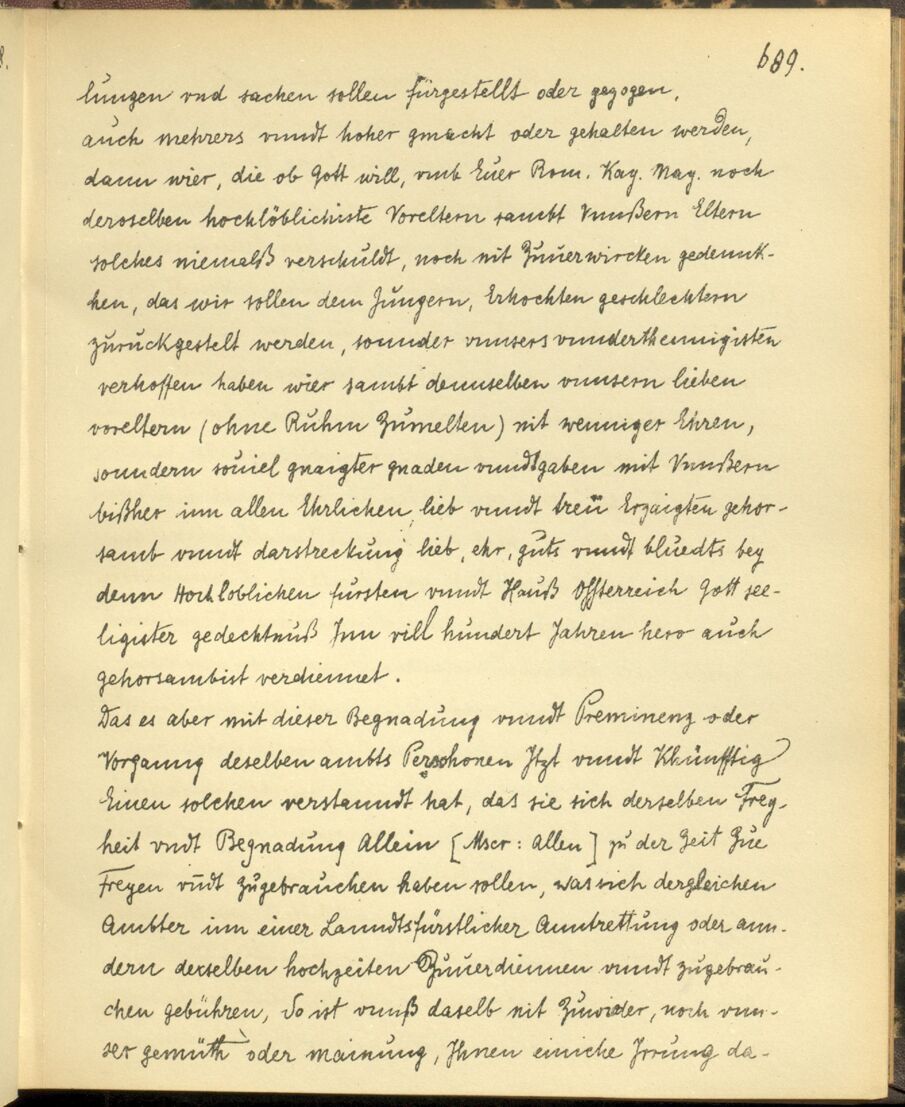 689.
lungen vnd sachen sollen fürgestellt oder gezogen,
auch mehrers vnndt hoher gmacht oder gehalten werden,
dann wier, die ob Gott will, vmb Euer Rom. Kay. May. noch
deroselben hochlöblichiste Voreltern sambt Vnnßern Eltern
solches niemalß verschuldt, noch nit Zuuerwircken gedennk-
hen, das wir sollen dem Jüngern, Erhochten geschlechtern
zurückgestelt werden, sonnder vnnsers vnnderthennigisten
verhoffen haben wier sambt dennselben vnnsern lieben
voreltern (ohne Ruhm Zumelten) nit wenniger Ehren,
sonndern souiel gnaigter gnaden vnndt gaben mit Vnnßern
bißher inn allen Ehrlichen, lieb vnndt treü Erzaigten gehor-
samb vnndt darstreckung lieb, ehr, guts vnndt bluedts bey
denn Hochloblichen fürsten vnndt Hauß Ossterreich Gott see-
ligister gedechtnuß Inn vill hundert Jahren hero auch
gehorsambist verdiennet.
Das es aber mit dieser Begnadung vnndt Preminenz oder
Vorganng deselben ambts Perschonen Itzt vnndt Khünfftig
Einen solchen verstanndt hat, das sie sich derselben Frey-
heit vndt Begnadung Allein [Mscr: allen] zu der Zeit Zue
Freyen vndt zugebrauchen haben sollen, was sich dergleichen
Ambter inn einer Lanndtsfürstlicher Anntrettung oder ann-
dern derselben hochzeiten Zuuerdiennen vnndt zugebrau-
chen gebühren, So ist vnnß daselb nit Zuwider, noch vnn-
ser gemüth oder mainung, Ihnen einiche Irrung da-